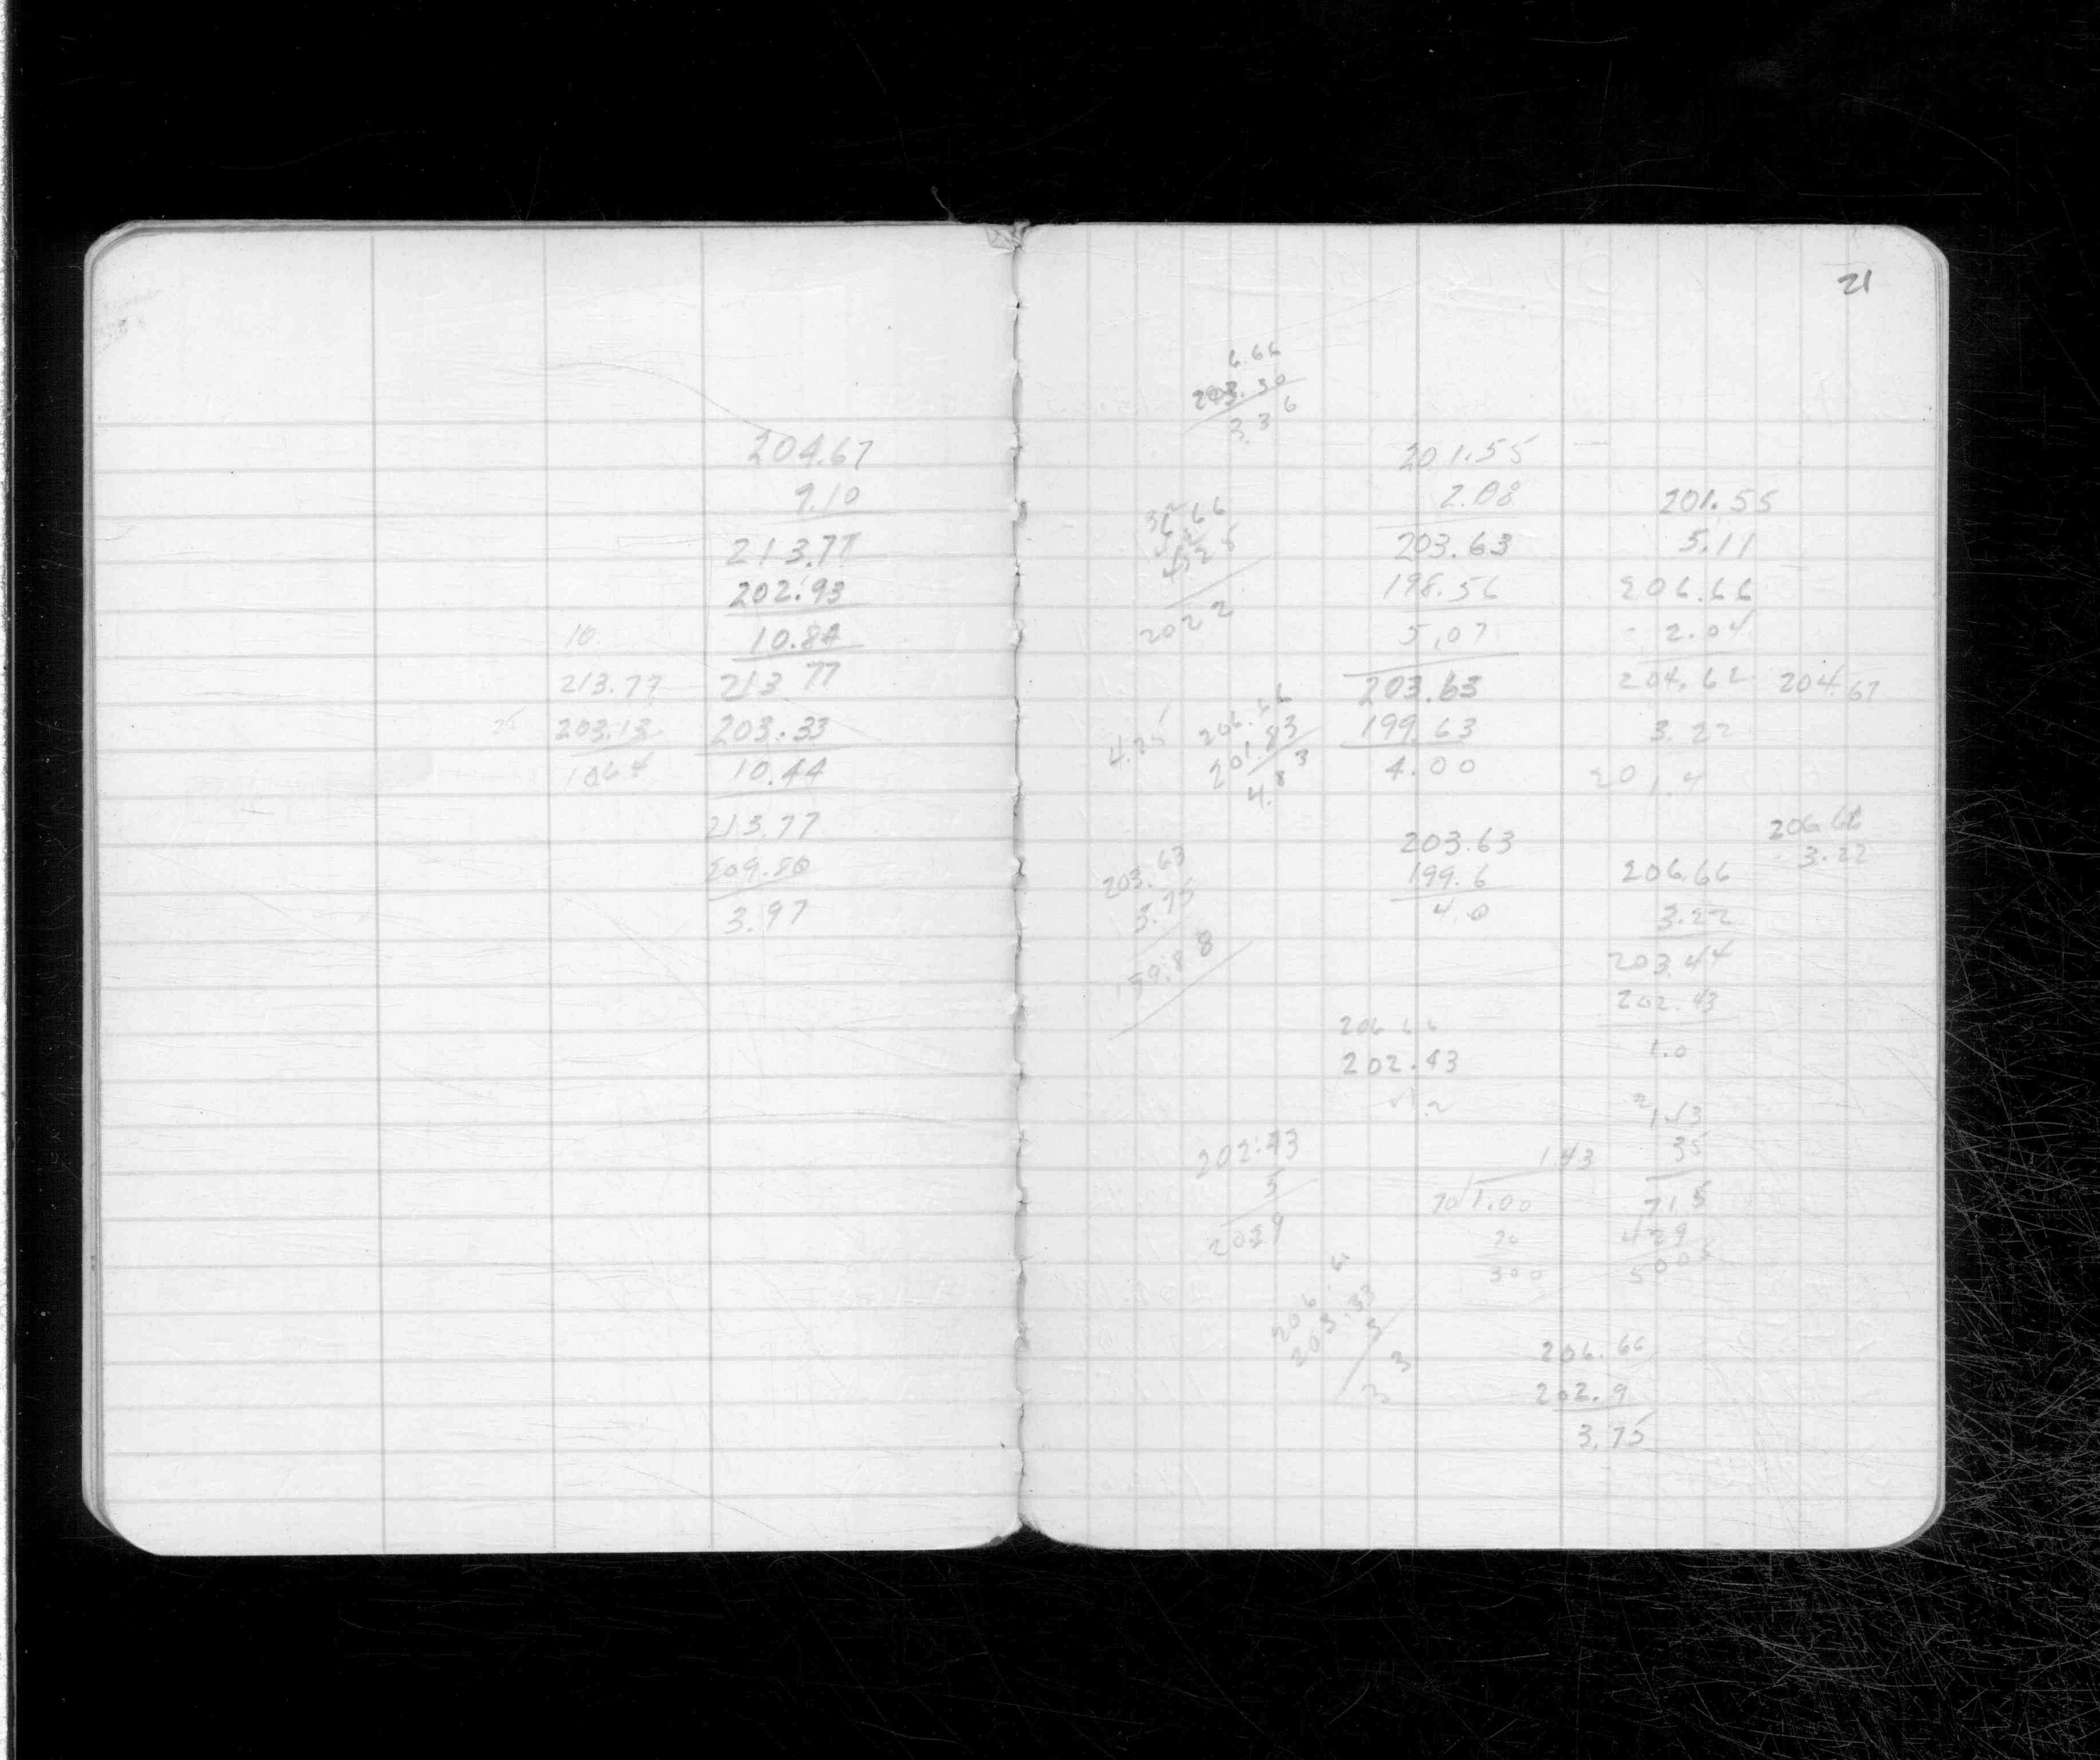 204.67
9.10
213.77
202.93
10.84
213.77
203.33
10.44
213.77
209.80
3.97
10.
213.77
203.13
10.64
21
6.66
203.30
3.36
201.55
2.08
203.63
198.56
5.07
203.63
199.63
4.00
203.63
199.6
4.0
201.55
5.11
206.66
- 2.04
204.62
204.67
3.22
201.4
206.66
3.22
206.66
3.22
203.44
202.43
1.0
2022
4.25
206.66
201.83
4.83
203.63
3.75
206.66
202.43
202.43
5
1.43
70 1.00
20
300
35
715
429
5005
206.66
202.9
3.75